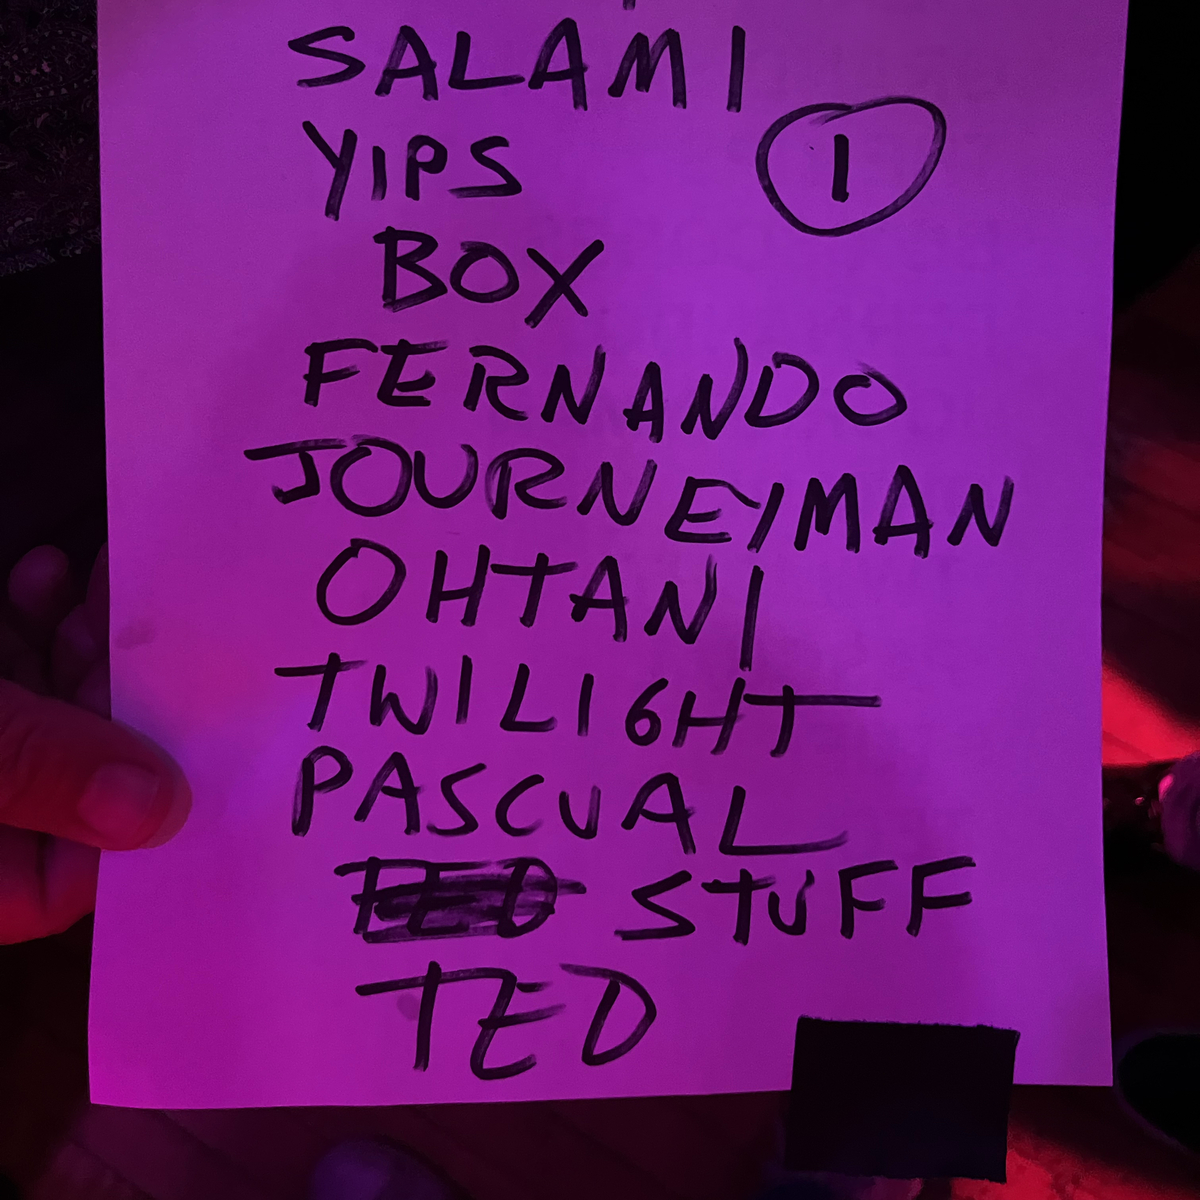 SALAMI
YIPS
1
BOX
FERNANDO
JOURNEYMAN
OHTANI
TWILIGHT
PASCUAL
STUFF
TED